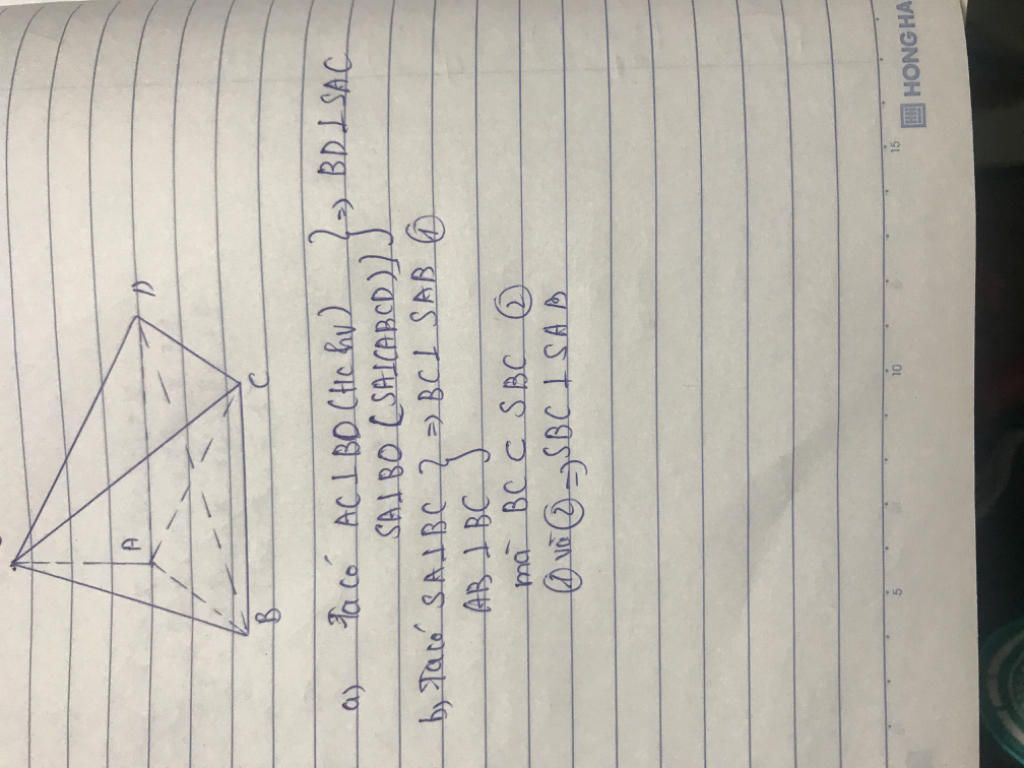 A
D
B
C
a) Ta có AC⊥BD (HC hv) } => BD⊥SAC
SA⊥BD (SA⊥(ABCD))
b) Ta có SA⊥BC } => BC⊥ SAB ①
AB⊥BC
mà BC ⊂ SBC ②
① và ② => SBC ⊥ SAB
5
10
15
HONG HA